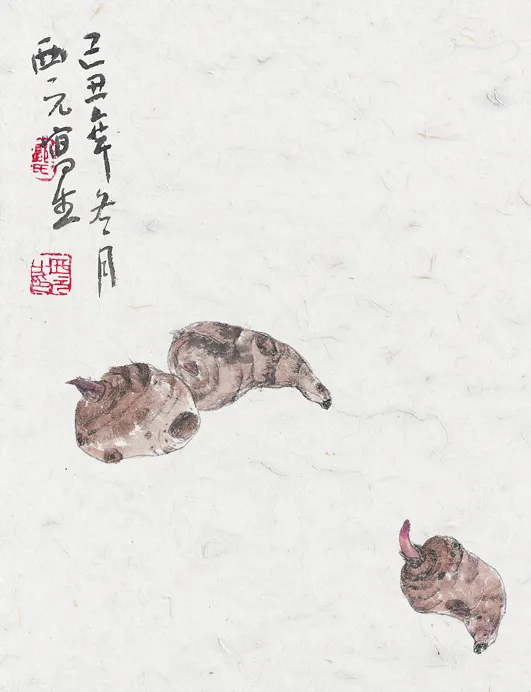 己丑年冬月
西元寫生